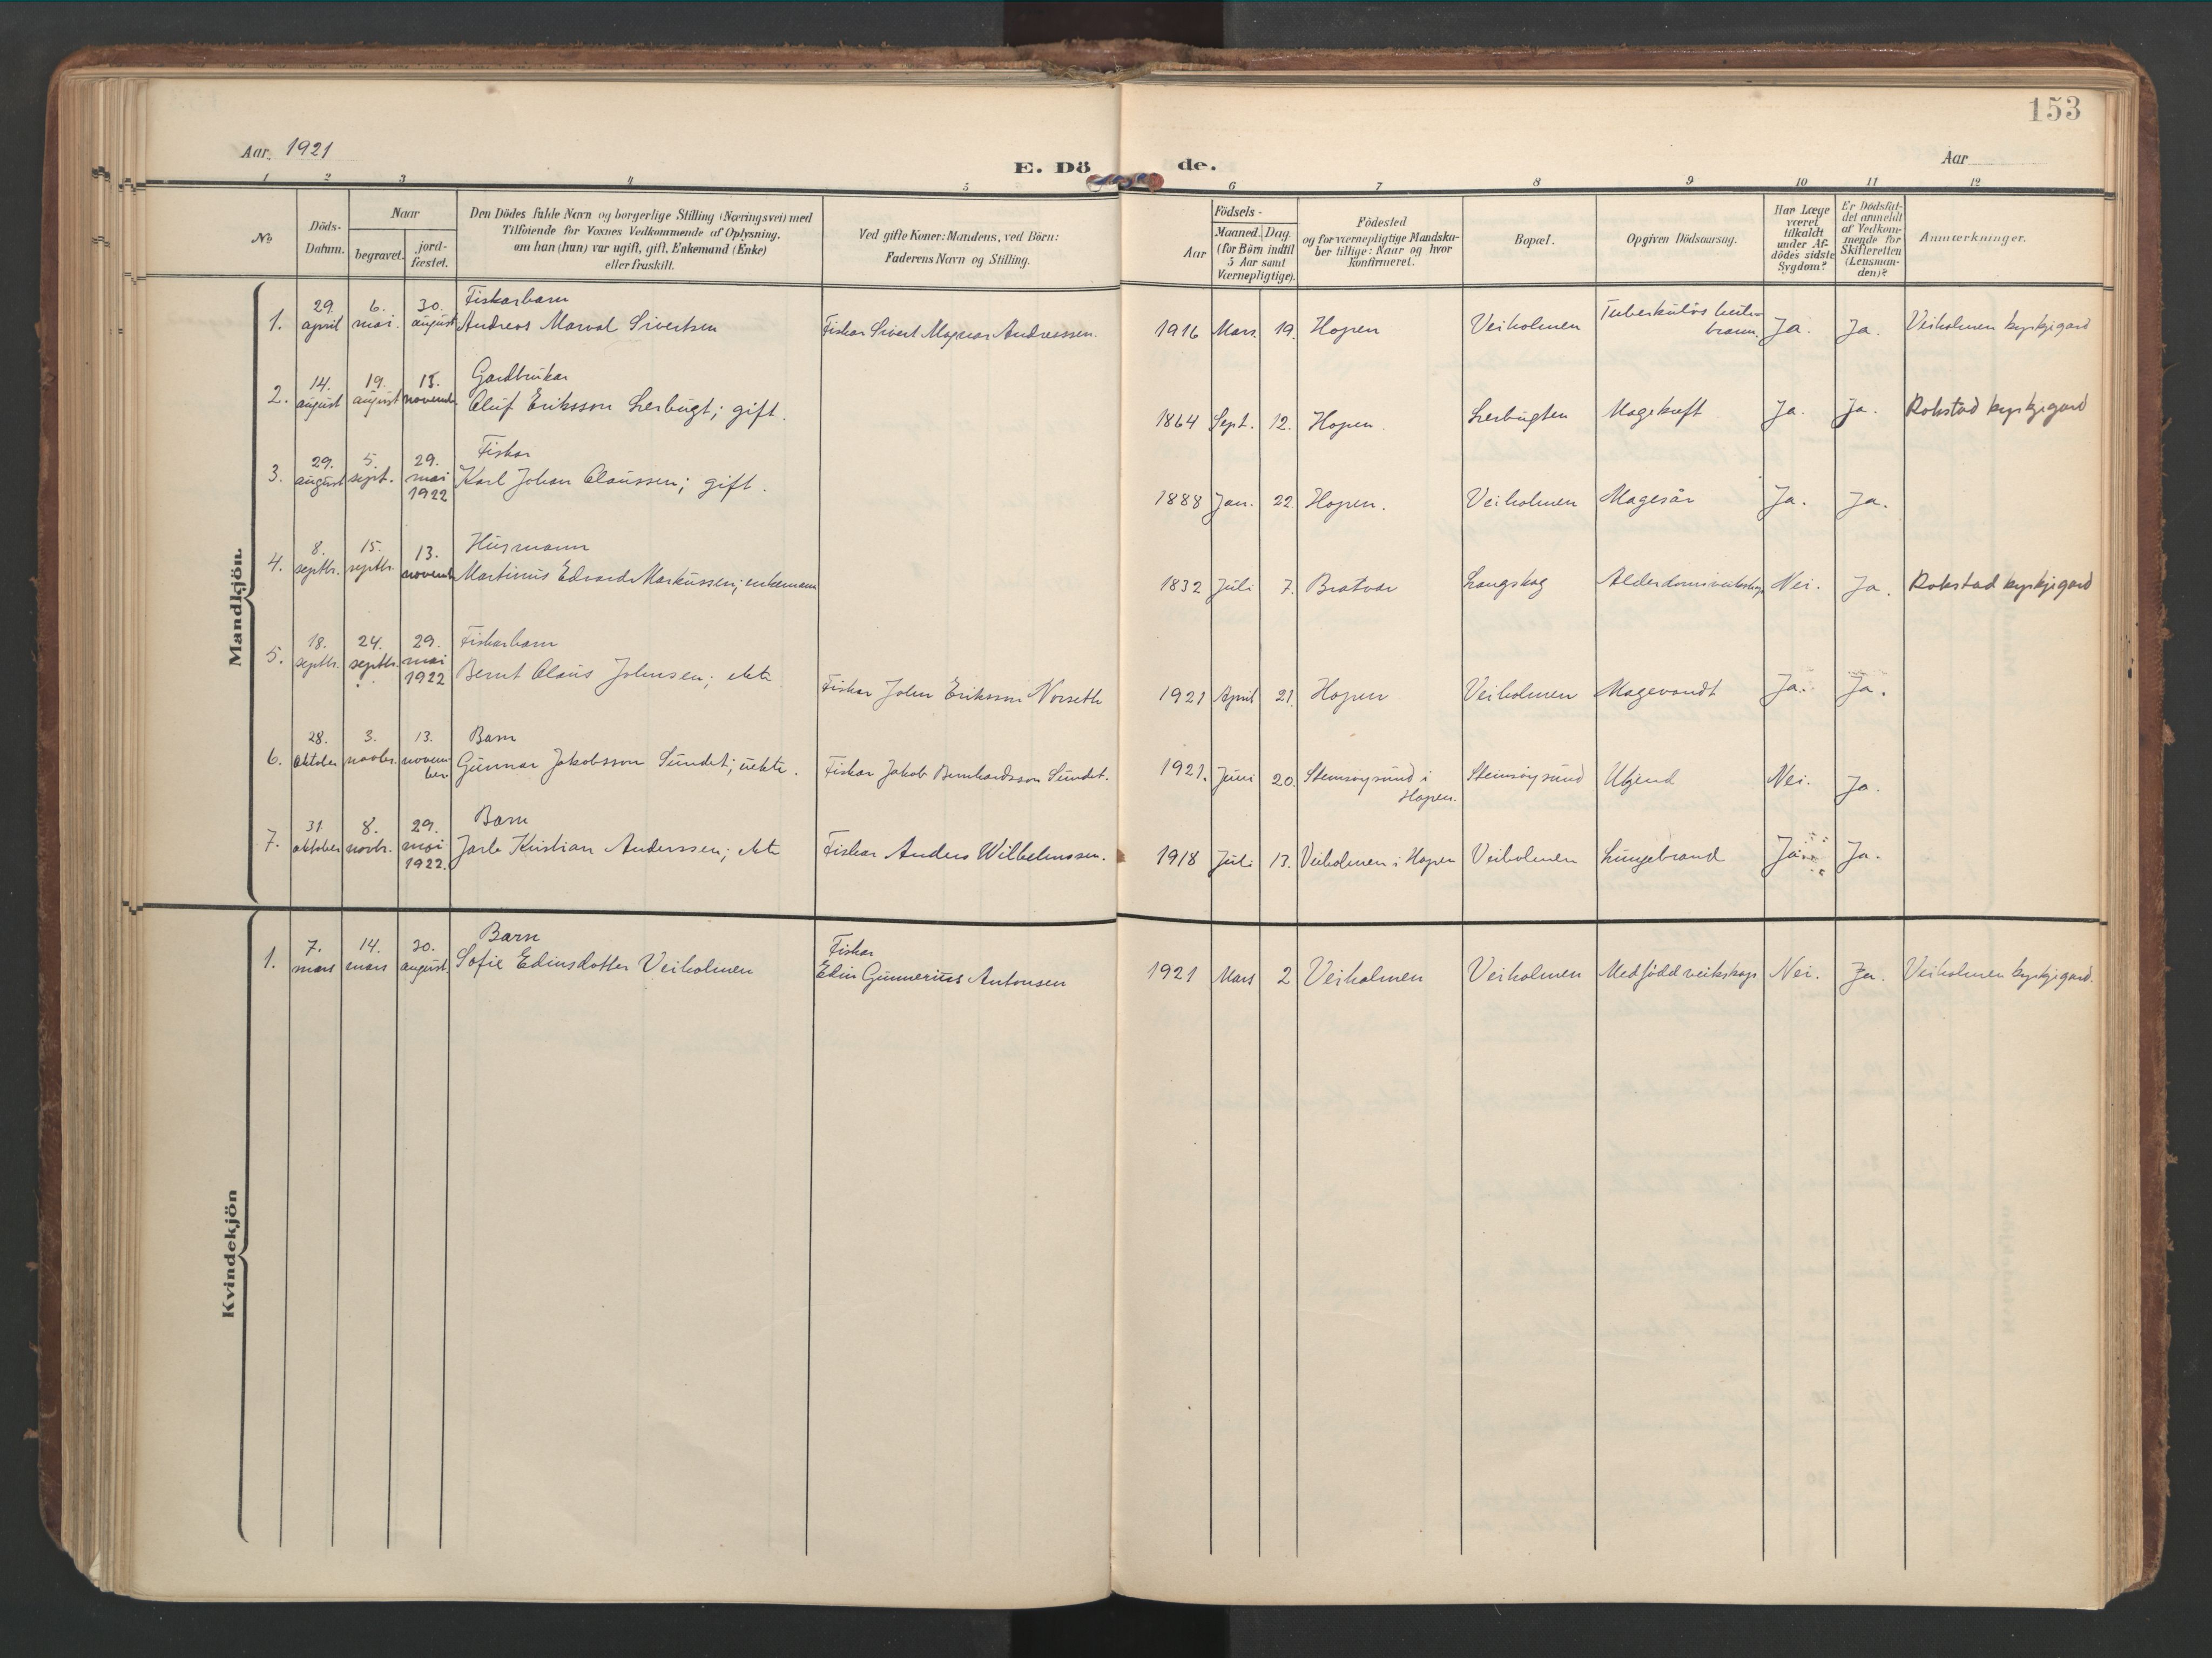 153
Aar 1921
E. Dö de.
Aar
1 2 3 4 5 6 7 8 9 10 11 12
No
Döds-Datum.
Naar
begravet.
jord-fæstet.
Den Dödes fulde Navn og borgerlige Stilling (Næringsvei) med
Tilföiende for Voxnes Vedkommende af Oplysning,
om han (hun) var ugift, gift, Enkemand (Enke)
eller fraskilt.
Ved gifte Koner: Mandens, ved Börn:
Faderens Navn og Stilling.
Födsels-
Aar
Maaned. Dag.
(for Börn indtil
5 Aar samt
Værnepligtige).
Födested
og for værnepligtige Mandska-
ber tillige: Naar og hvor
konfirmeret.
Bopæl.
Opgiven Dödsaarsag.
Har Læge
været
tilkaldt
under Af-
dödes sidste
Sygdom?
Er Dödsfal-
det anmeldt
af Vedkom-
mende for
Skifteretten
(Lensman-
den)?
Anmærkninger.
Mandkjön.
1. 29. april 6. mai. 30. august Fiskarbarn
Andreas Marval Sivertsen Fiskar Sivert Magnar Andreassen. 1916 Mars. 19. Hopen Veiholmen Tuberkuløs
Ja. Ja. Veiholmen kyrkjegard
2. 14. august 19. august 13. novembr Gardbrukar
Oluf Eriksson Lerbugt; gift. 1864 Sept. 12. Hopen. Lerbugten Magekræft Ja. Ja. Rokstad kyrkjegard
3. 29. august 5. sept. 29. mai 1922 Fiskar
Karl Johan Olaussen; gift. 1888 Jan. 22 Hopen. Veiholmen Magesår Ja. Ja.
4. 8. septbr. 15. septbr. 13. novembr Husmann
Martinus Edvard Markussen; enkemann 1832 Juli 7. Bratvær Langskog Alderdomsveikskap Nei. Ja. Rokstad kyrkjegard
5. 18. septbr. 24. septbr. 29. mai 1922 Fiskarbarn
Bernt Olaus Johnsen; ekte Fiskar John Eriksson Norseth 1921 April 21. Hopen Veiholmen Magevondt Ja. Ja.
6. 28. oktober 3. novbr. 13. novem-ber Barn
Gunnar Jakobsson Sundet; uekte. Fiskar Jakob Bernhardsson Sundet. 1921. Juni 20. Steinsøysund i
Hopen. Steinsøysund Ukjend Nei. Ja.
7. 31. oktober 8. novbr. 29. mai 1922. Barn
Jarle Kristian Anderssen; ekte Fiskar Anders Wilhelmssen. 1918 Juli 13. Veiholmen i Hopen Veiholmen Lungebrand Ja. Ja.
Kvindekjön
1. 7. mars 14. mars 30. august Barn
Sofie Edinsdotter Veiholmen Fiskar
Edin Gunnerius Antonsen 1921 Mars 2 Veiholmen Veiholmen Medfødd veikskap Nei. Ja. Veiholmen kyrkjegard.